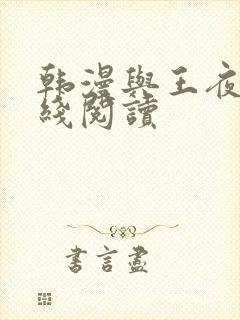 韩漫與王夜
綫閱讀
書言盡